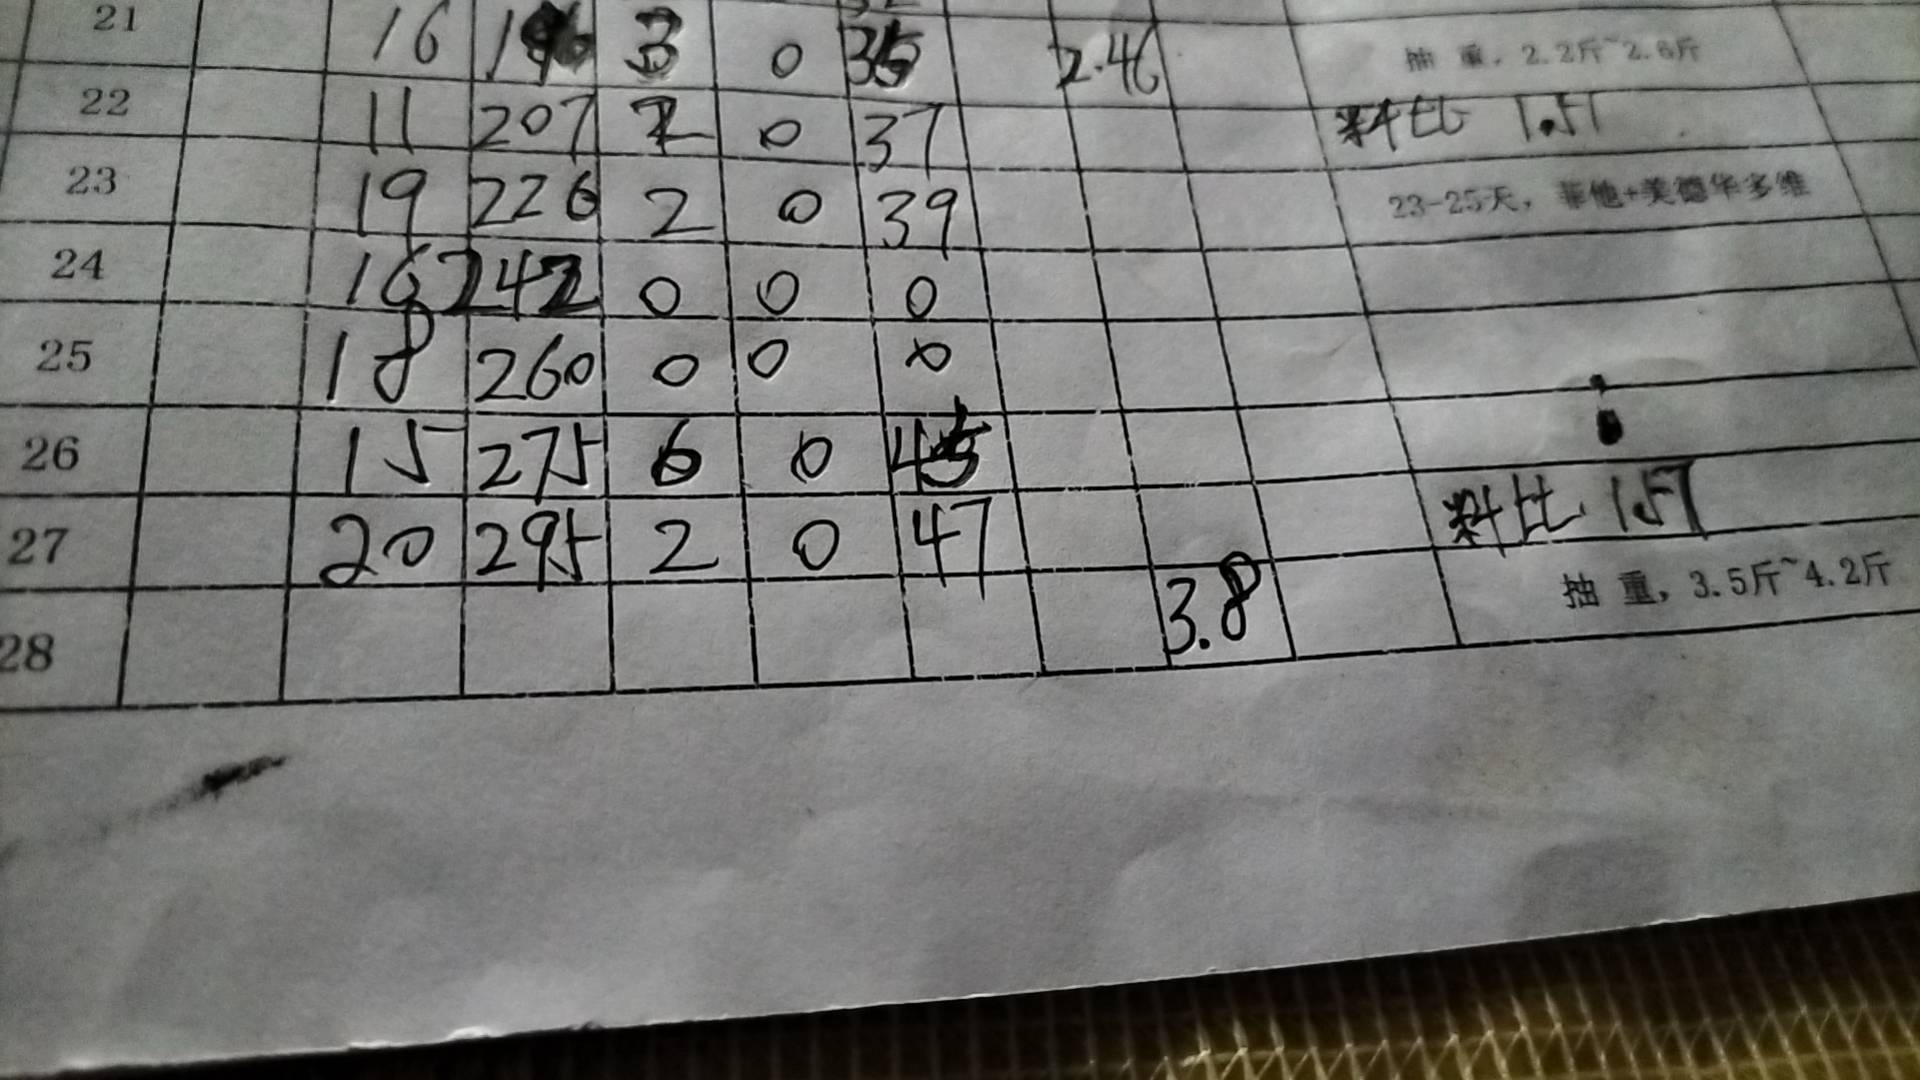 21 16 196 3 0 35 2.46 抽 重, 2.2斤~2.6斤
22 11 207 2 0 37 料比 1.51
23 19 226 2 0 39 23-25天, 菲他+美德华多维
24 16 242 0 0 0
25 18 260 0 0 0
26 15 275 6 0 45
27 20 295 2 0 47 料比 1.57
28 3.8 抽 重, 3.5斤~4.2斤